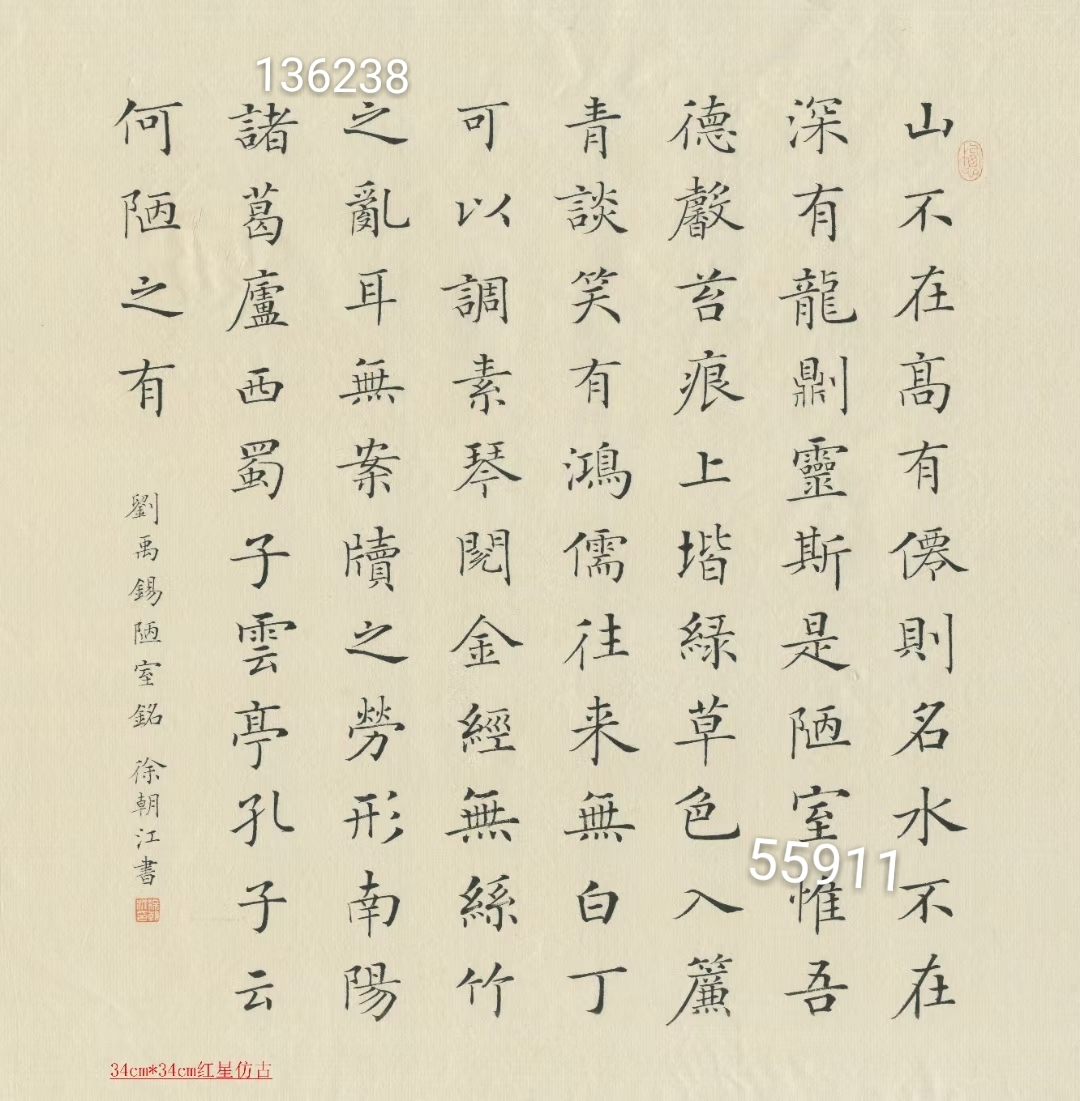 136238
山不在高有僊則名水不在
深有龍則靈斯是陋室惟吾
德馨苔痕上堦緑草色入簾
青談笑有鴻儒往来無白丁
可以調素琴閱金經無絲竹
之亂耳無案牘之勞形南陽
諸葛廬西蜀子雲亭孔子云
何陋之有
劉禹錫陋室銘 徐朝江書
55911
34cm*34cm红星仿古